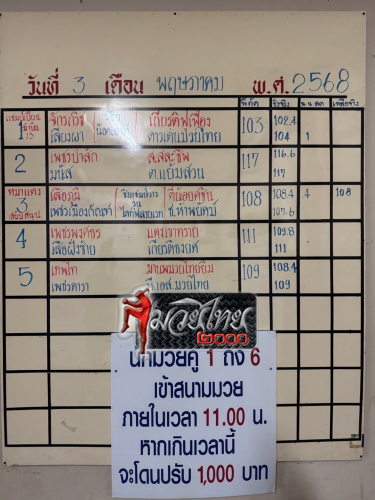 วันที่ 3 เดือน พฤษภาคม พ.ศ. 2568
พิกัด ชั่งจริง น.น.ลด เหลือจริง
1 จักรกริช เกียรติเฟื่อง 103 102.4
เสียงผา ดาวเด่นมวยไทย 104 1
2 เพชรปาสัก ส.สละชีพ 117 116.6
มนัส ต.แย้มสวน 117
3 เสือภูมิ 108 108.4 4 108
เพชรเรืองภัณฑ์ ช.ห้าพยัคฆ์ 107.6
4 เพชรพงศธร แดงเจาทราย 111 109.8
เสือฝั่งซ้าย เกียรติชงยศ 111
5 เทพไท มาแพมวยไทยยิม 109 108.4
เพชรดารา พี.เอส.มวยไทย 109
มวยไทย
๒๐๐๐
นักมวยคู่ 1 ถึง 6
เข้าสนามมวย
ภายในเวลา 11.00 น.
หากเกินเวลานี้
จะโดนปรับ 1,000 บาท